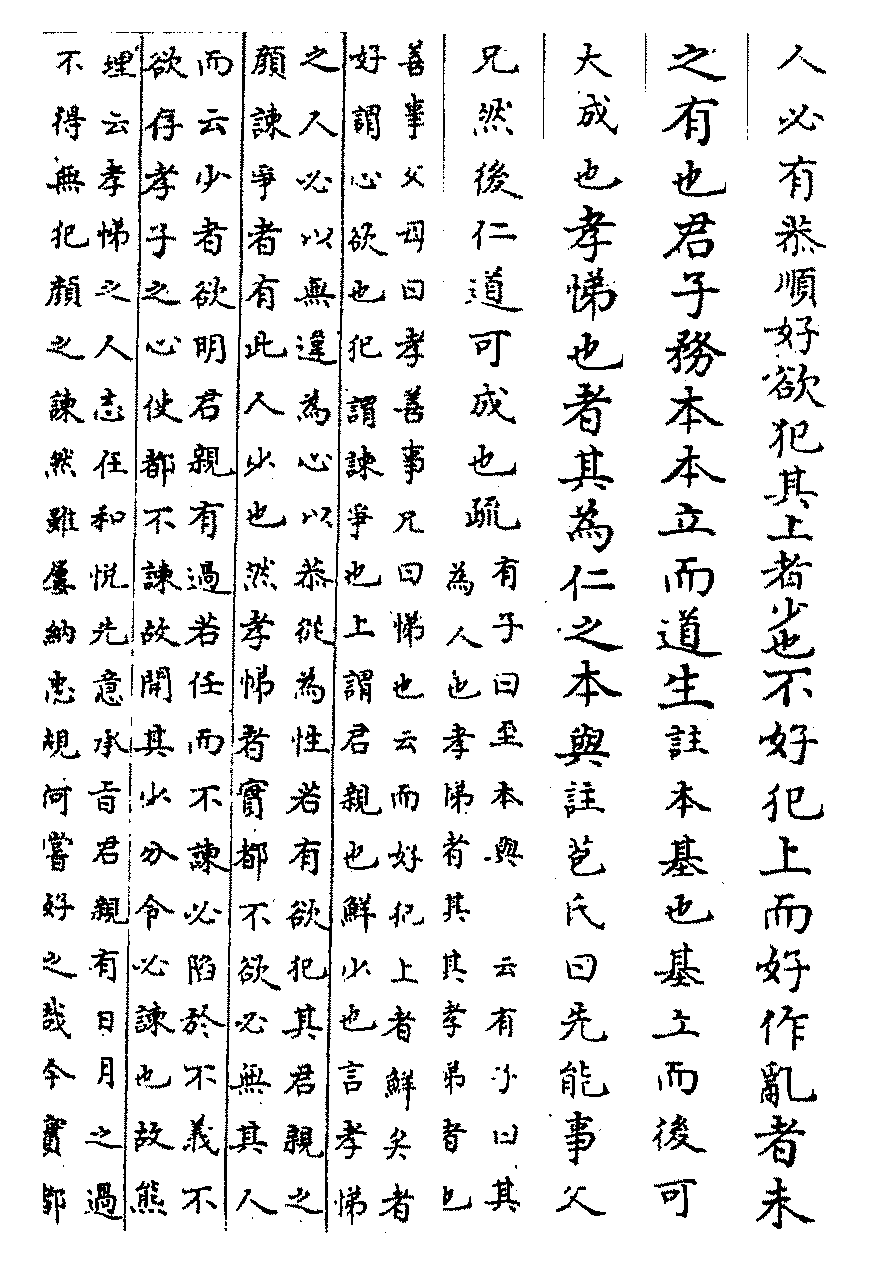 人必有恭順好欲犯其上者少也不好犯上而好作亂者未
之有也君子務本本立而道生註本基也基立而後可
大成也孝悌也者其為仁之本與註苞氏曰先能事父
兄然後仁道可成也疏
有子曰至本與　云有子曰其
為人也孝悌者其其孝弟者也
善事父母曰孝善事兄曰悌也云而好犯上者鮮矣者
好謂心欲也犯謂諫爭也上謂君親也鮮少也言孝悌
之人必以無違為心以恭從為性若有欲犯其君親之
顏諫爭者有此人少也然孝悌者實都不欲必無其人
而云少者欲明君親有過若任而不諫必陷於不義不
欲存孝子之心使都不諫故開其少分令必諫也故熊
埋云孝悌之人志在和悅先意承旨君親有日月之過
不得無犯顏之諫然雖屢納忠規何嘗好之哉今實都